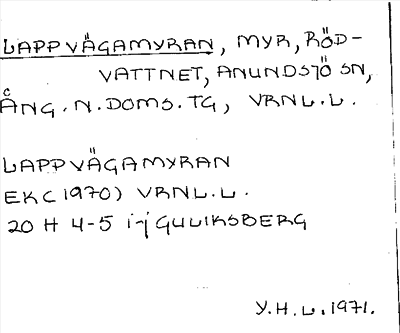 LAPPVÄGAMYRAN, MYR, RÖD-
VATTNET, ANUNDSJÖ SN,
ÅNG. N. DOMS. TG, VRNL.L.
LAPPVÄGAMYRAN
EKC(1970) VRNL.L.
20 H 4-5 i-j GULIKSBERG
Y.H.L. 1971.